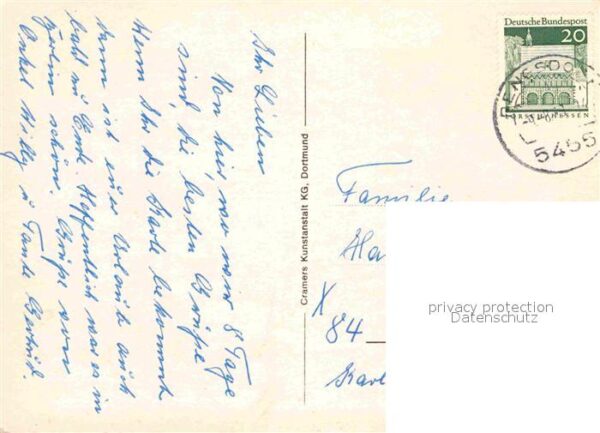 Ihr Lieben
Von hier, wo wir 8 Tage
sind, die besten Grüße
Wenn Ihr die Karte bekommt
dann ist euer Urlaub auch
bald zu Ende. Hoffentlich war es in
schön. Grüße von
Onkel Willy u Tante Gertrud.
Cramers Kunstanstalt KG, Dortmund
Deutsche Bundespost
20
LORSCH/HESSEN
5455
Familie
Ha
X
84
Karl
privacy protection
Datenschutz